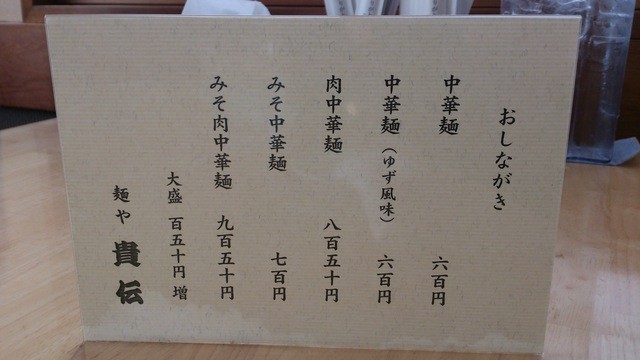 おしながき
中華麺 六百円
中華麺（ゆず風味） 六百円
肉中華麺 八百五十円
みそ中華麺 七百円
みそ肉中華麺 九百五十円
大盛 百五十円 増
麺や 貴伝